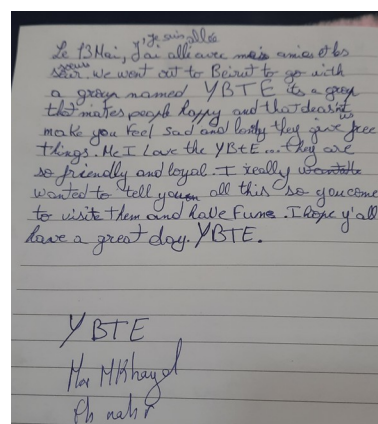 je suis allée
Le 13 Mai, j'ai allé avec mes amies et les
sœurs. We went out to Beirut to go with
a group named YBTE its a group
that makes people happy and that doesn't
make you feel sad and lastly they give us free
things. Me I Love the YBtE... they are
so friendly and loyal. I really
wanted to tell you all this so you come
to visite them and have Fun. I hope y'all
have a great day. YBTE.
YBTE